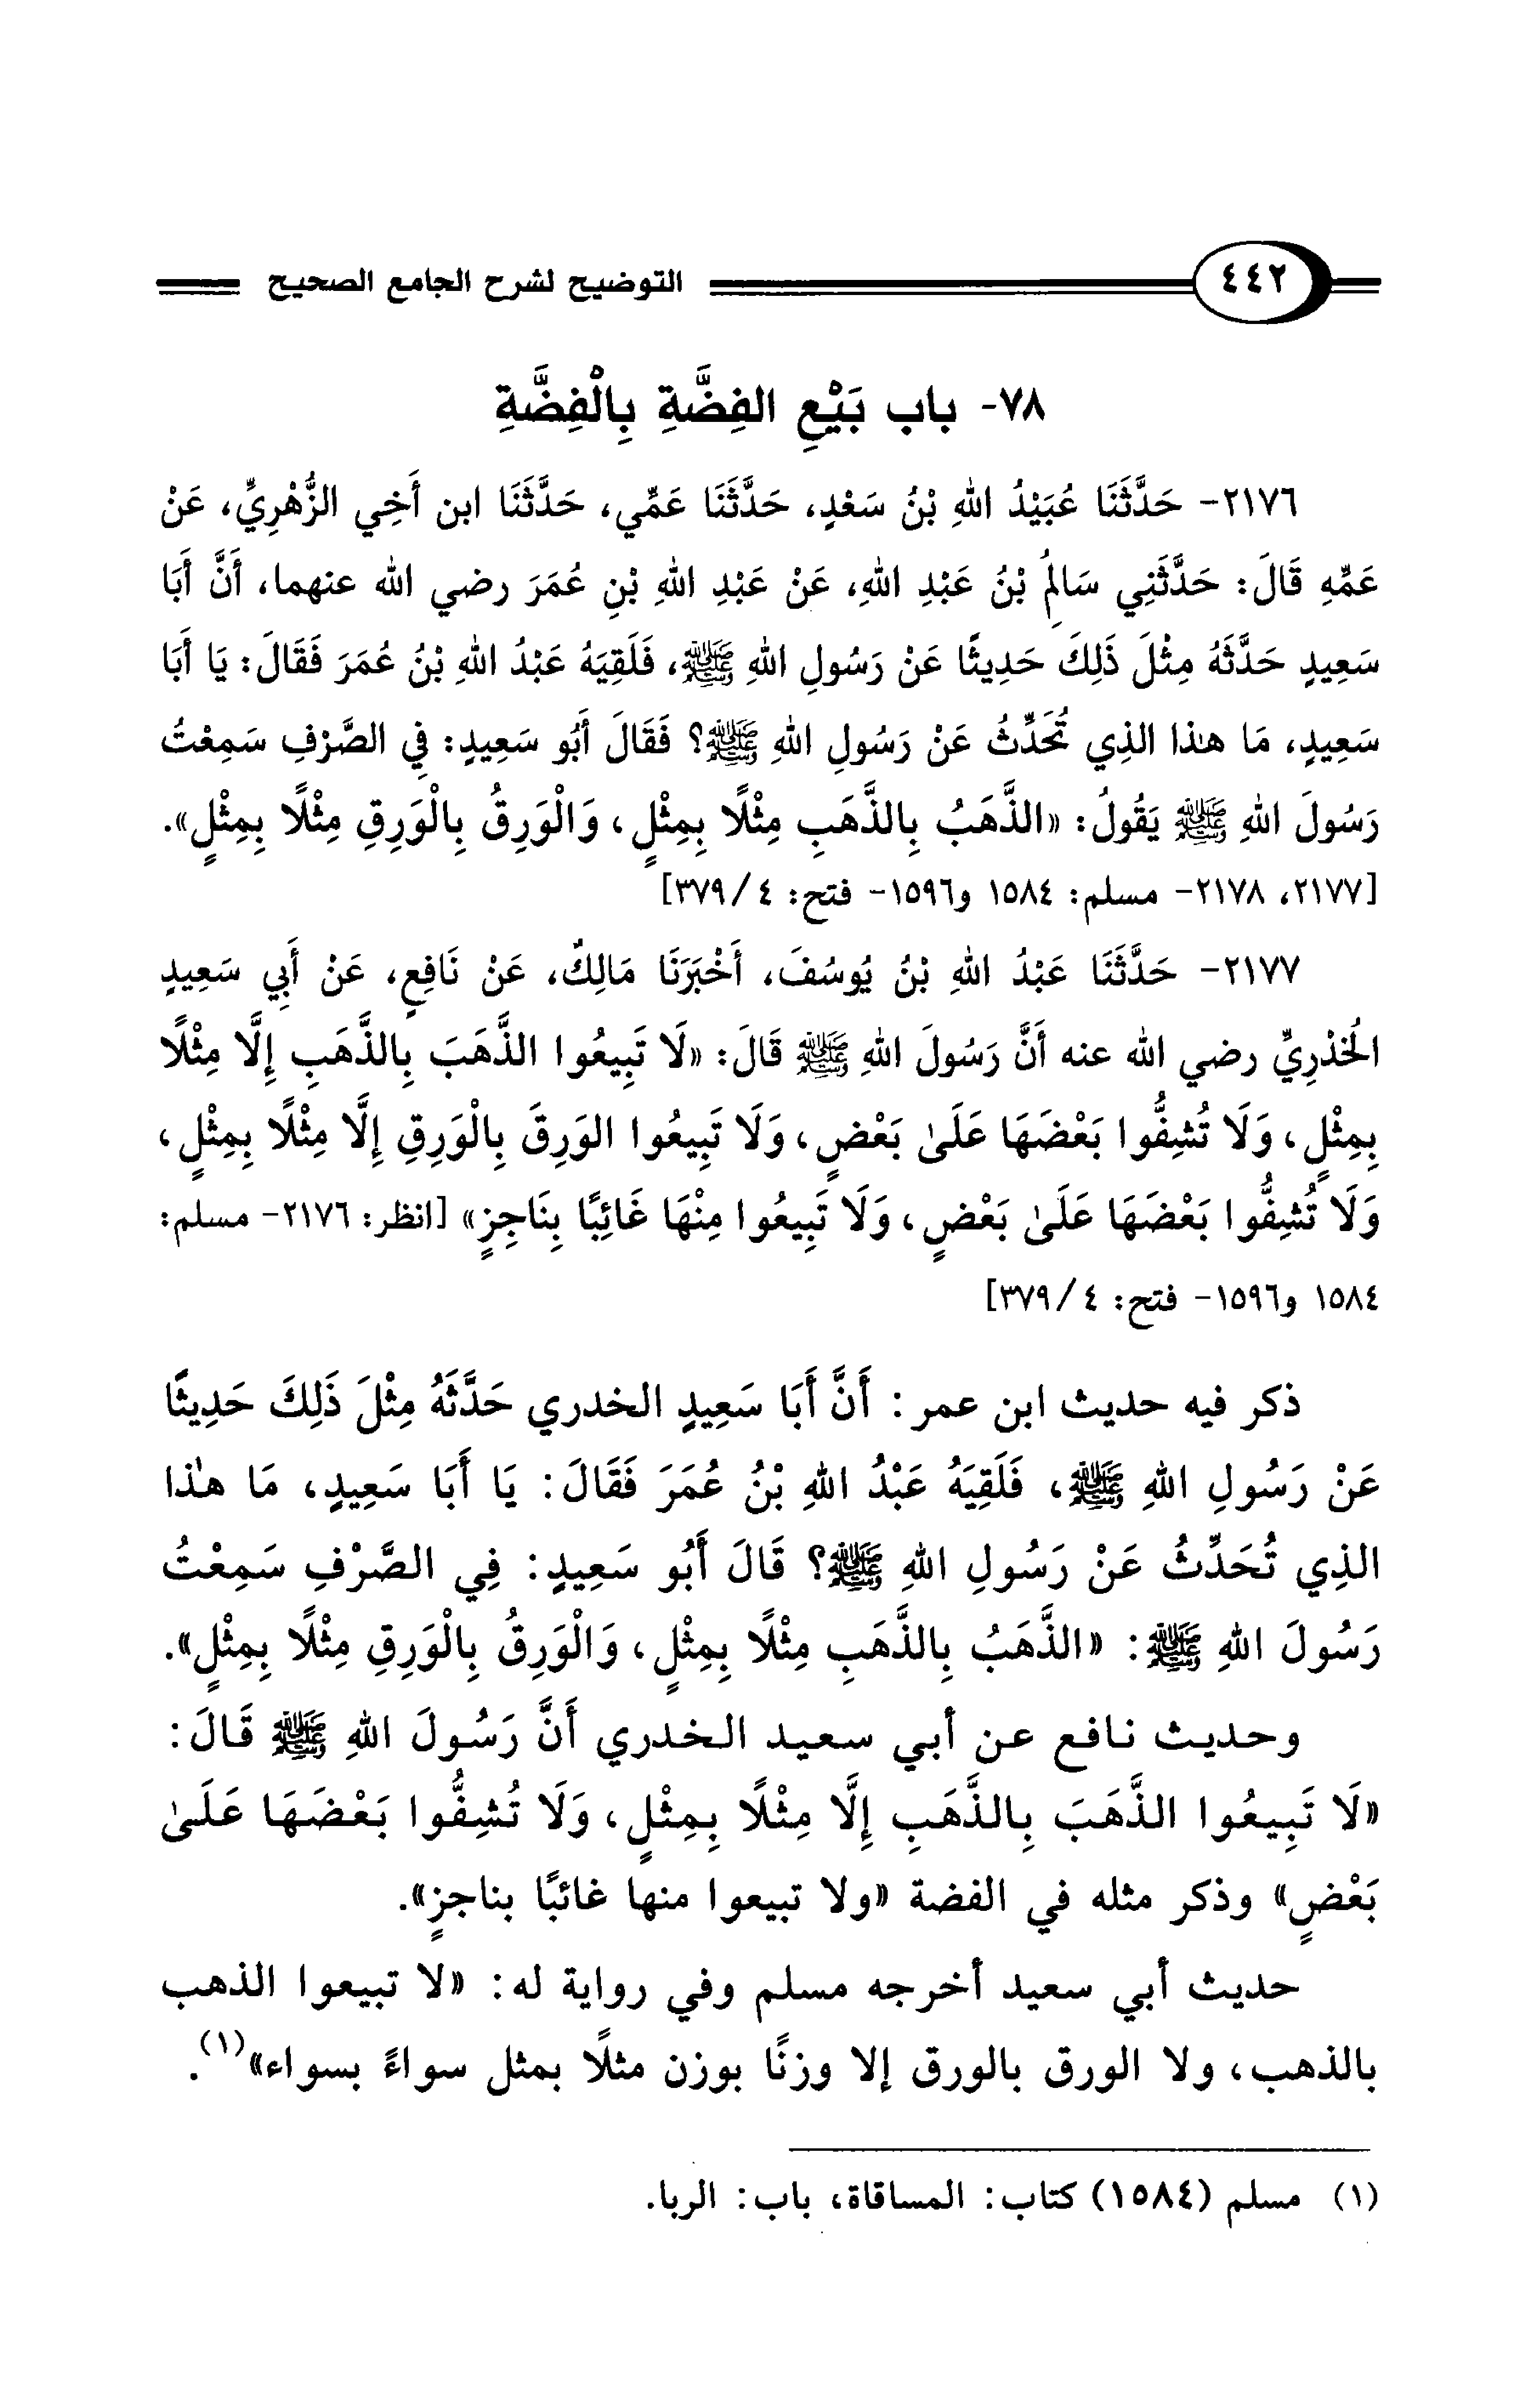 ٤٤٢ التوضيح لشرح الجامع الصحيح
٧٨- باب بَيْعِ الفِضَّةِ بِالْفِضَّةِ
٢١٧٦- حَدَّثَنَا عُبَيْدُ اللهِ بْنُ سَعْدٍ، حَدَّثَنَا عَمِّي، حَدَّثَنَا ابن أَخِي الزُّهْرِيِّ، عَنْ
عَمِّهِ قَالَ: حَدَّثَنِي سَالِمُ بْنُ عَبْدِ اللهِ، عَنْ عَبْدِ اللهِ بْنِ عُمَرَ رضي الله عنهما، أَنَّ أَبَا
سَعِيدٍ حَدَّثَهُ مِثْلَ ذَلِكَ حَدِيثًا عَنْ رَسُولِ اللهِ ﷺ، فَلَقِيَهُ عَبْدُ اللهِ بْنُ عُمَرَ فَقَالَ: يَا أَبَا
سَعِيدٍ، مَا هذا الذِي تُحَدِّثُ عَنْ رَسُولِ اللهِ ﷺ؟ فَقَالَ أَبُو سَعِيدٍ: فِي الصَّرْفِ سَمِعْتُ
رَسُولَ اللهِ ﷺ يَقُولُ: «الذَّهَبُ بِالذَّهَبِ مِثْلًا بِمِثْلٍ، وَالْوَرِقُ بِالْوَرِقِ مِثْلًا بِمِثْلٍ».
[٢١٧٧، ٢١٧٨- مسلم: ١٥٨٤ و١٥٩٦- فتح: ٤/ ٣٧٩]
٢١٧٧- حَدَّثَنَا عَبْدُ اللهِ بْنُ يُوسُفَ، أَخْبَرَنَا مَالِكٌ، عَنْ نَافِعٍ، عَنْ أَبِي سَعِيدٍ
الْخُدْرِيِّ رضي الله عنه أَنَّ رَسُولَ اللهِ ﷺ قَالَ: «لَا تَبِيعُوا الذَّهَبَ بِالذَّهَبِ إِلَّا مِثْلًا
بِمِثْلٍ، وَلَا تُشِفُّوا بَعْضَهَا عَلَىٰ بَعْضٍ، وَلَا تَبِيعُوا الوَرِقَ بِالْوَرِقِ إِلَّا مِثْلًا بِمِثْلٍ،
وَلَا تُشِفُّوا بَعْضَهَا عَلَىٰ بَعْضٍ، وَلَا تَبِيعُوا مِنْهَا غَائِبًا بِنَاجِزٍ» [انظر: ٢١٧٦- مسلم:
١٥٨٤ و١٥٩٦- فتح: ٤/ ٣٧٩]
ذكر فيه حديث ابن عمر: أَنَّ أَبَا سَعِيدٍ الخدري حَدَّثَهُ مِثْلَ ذَلِكَ حَدِيثًا
عَنْ رَسُولِ اللهِ ﷺ، فَلَقِيَهُ عَبْدُ اللهِ بْنُ عُمَرَ فَقَالَ: يَا أَبَا سَعِيدٍ، مَا هٰذا
الذِي تُحَدِّثُ عَنْ رَسُولِ اللهِ ﷺ؟ قَالَ أَبُو سَعِيدٍ: فِي الصَّرْفِ سَمِعْتُ
رَسُولَ اللهِ ﷺ: «الذَّهَبُ بِالذَّهَبِ مِثْلًا بِمِثْلٍ، وَالْوَرِقُ بِالْوَرِقِ مِثْلًا بِمِثْلٍ».
وحديث نافع عن أبي سعيد الخدري أَنَّ رَسُولَ اللهِ ﷺ قَالَ:
«لَا تَبِيعُوا الذَّهَبَ بِالذَّهَبِ إِلَّا مِثْلًا بِمِثْلٍ، وَلَا تُشِفُّوا بَعْضَهَا عَلَىٰ
بَعْضٍ» وذكر مثله في الفضة «ولا تبيعوا منها غائبًا بناجزٍ».
حديث أبي سعيد أخرجه مسلم وفي رواية له: «لا تبيعوا الذهب
بالذهب، ولا الورق بالورق إلا وزنًا بوزن مثلًا بمثل سواءً بسواء»(١).
(١) مسلم (١٥٨٤) كتاب: المساقاة، باب: الربا.